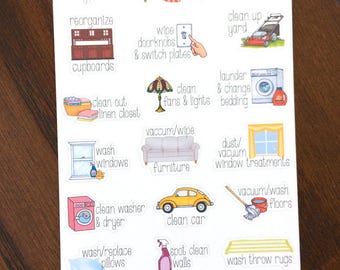 reorganize
cupboards
wipe
doorknobs
& switch plates
clean up
yard
clean out
linen closet
clean
fans & lights
launder
& change
bedding
wash
windows
vacuum/wipe
furniture
dust/
vacuum
window treatments
clean washer
& dryer
clean car
vacuum/wash
floors
wash/replace
pillows
spot clean
walls
wash throw rugs